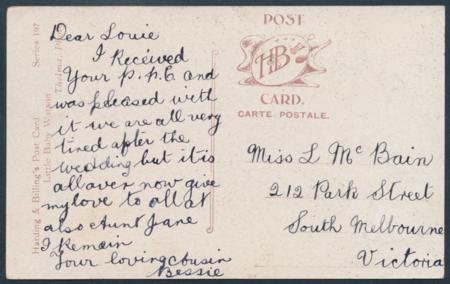 Dear Louie
I Received
Your P.P.C and
was pleased with
it we are all very
tired after the
wedding but it is
all over now give
my love to all at
also Aunt Jane
I Remain
Your loving cousin
Bessie
Harding & Billing's Post Card Series 107
Little Baby
POST
H&B
CARD.
CARTE POSTALE.
Miss L McBain
212 Park Street
South Melbourne
Victoria